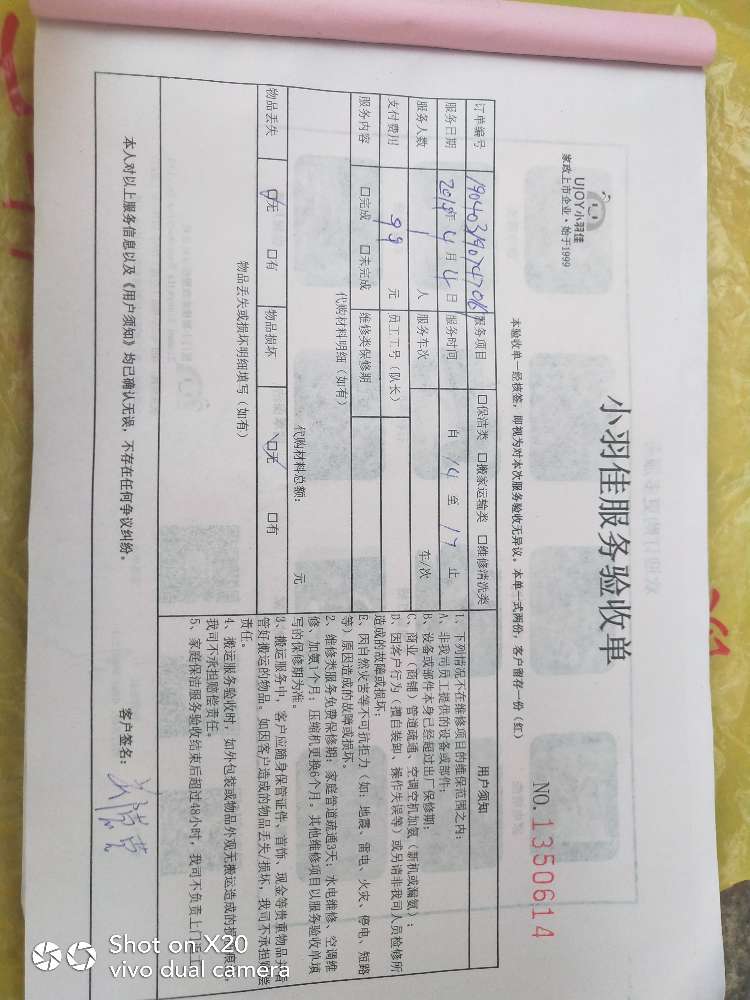 UJOY小羽佳
家政上市企业·始于1999
小羽佳服务验收单
NO.1350614
本验收单一经核签，即视为对本次服务验收无异议。本单一式两份，客户留存一份（红）
订单编号
服务项目 □保洁类 □搬家运输类 □维修清洗类
服务日期 2019年4月4日 服务时间 自 14 至 17 止
服务人数 1 人 服务车次 车/次
支付费用 99 元 员工工号（队长）
服务内容 □完成 □未完成 维修类保修期
代购材料明细（如有）
代购材料总额： 元
物品丢失 □无 □有 物品损坏 □无 □有
物品丢失或损坏明细填写（如有）
用户须知
1、下列情况不在维修项目的维保范围之内：
A、非我司员工提供的设备或部件；
B、设备或部件本身已经超过出厂保修期；
C、商业（商铺）管道疏通、空调空机加氨（新机或漏氨）；
D、因客户行为（擅自装卸、操作失误等）或另请非我司人员检修所
造成的故障或损坏；
E、因自然灾害等不可抗拒力（如：地震、雷电、火灾、停电、短路
等）原因造成的故障或损坏。
2、维修类服务免费保修期：家庭管道疏通3天；水电维修、空调维
修、加氨1个月；压缩机更换6个月。其他维修项目以服务验收单填
写的保修期为准。
3、搬运服务中，客户应随身保管证件、首饰、现金等贵重物品并看
管好搬运的物品。如因客户造成的物品丢失/损坏，我司不承担赔偿
责任。
4、搬运服务验收时，如外包装或物品外观无搬运造成的损
我司不承担赔偿责任。
5、家庭保洁服务验收结束后超过48小时，我司不负责上
本人对以上服务信息以及《用户须知》均已确认无误，不存在任何争议纠纷。
客户签名：
Shot on X20
vivo dual camera